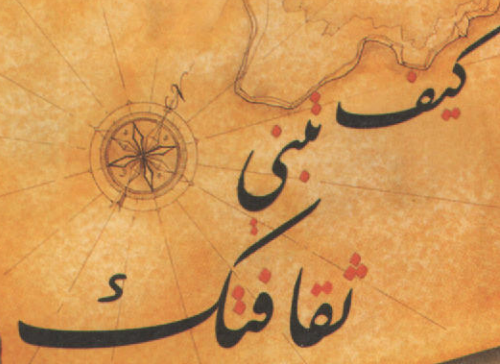 كيف
تبني
ثقافتك